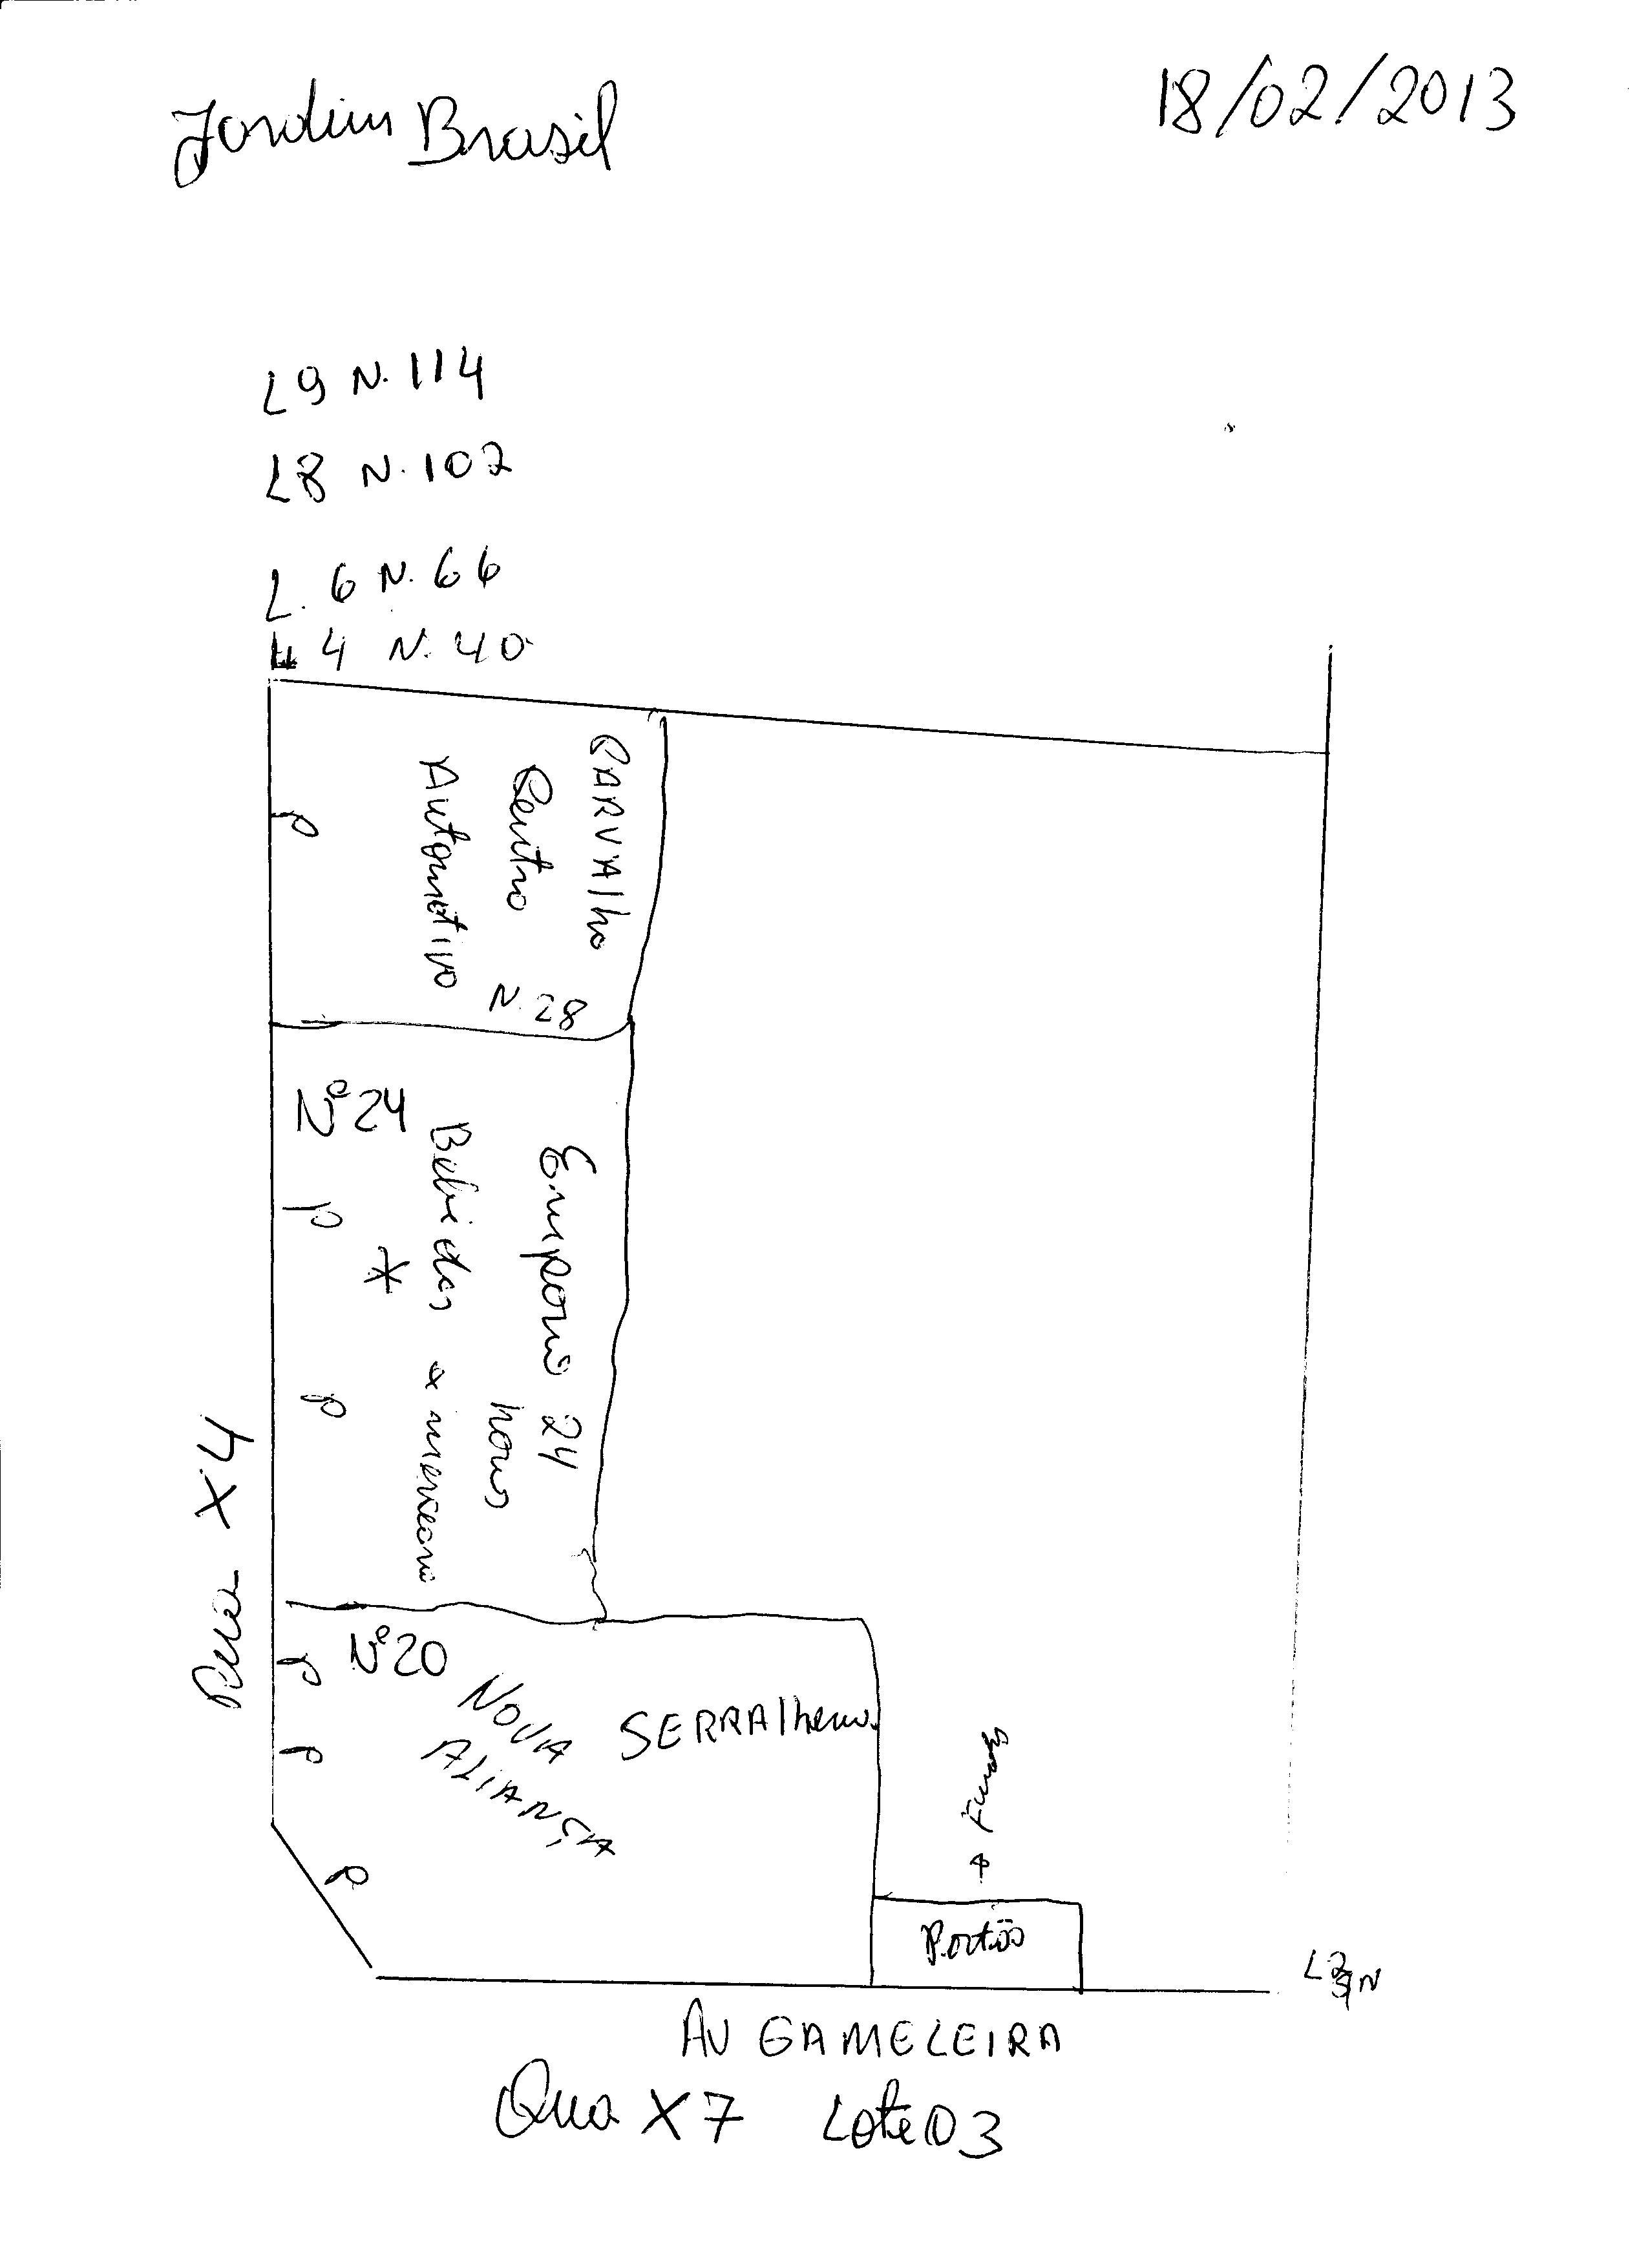 Jardim Brasil
18/02/2013
L9 N. 114
L8 N. 102
L. 6 N. 66
L 4 N. 40
CARVALho
Centro
Automotivo
N. 28
Nº 24
Emporio 24
horas
Bebidas e mercearia
*
P
P
P
Rua X4
Nº 20
NOVA
ALIANÇA
SERRAlheria
P
P
P
Fundos
Portão
L2 S/N
AV GAMELEIRA
Qua X7 Lote 03